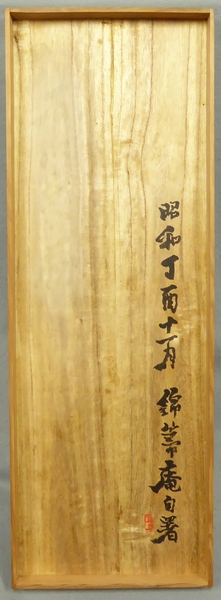 昭和丁酉十一月 錦幕庵自署